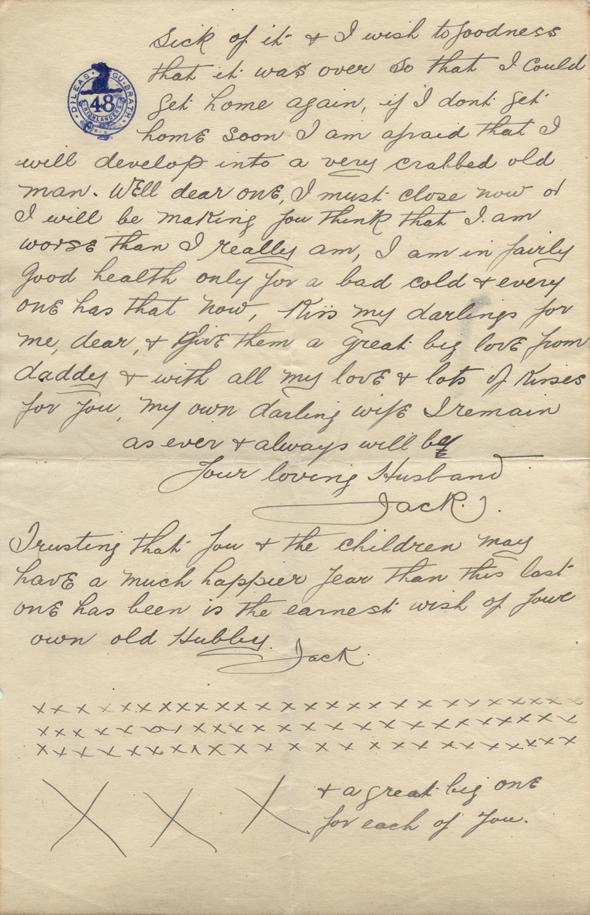 sick of it & I wish to goodness
that it was over so that I could
get home again, if I dont get
home soon I am afraid that I
will develop into a very crabbed old
man. Well dear one, I must close now or
I will be making you think that I am
worse than I really am, I am in fairly
good health only for a bad cold & every
one has that now, Kiss my darlings for
me, dear, & give them a great big love from
daddy & with all my love & lots of kisses
for you, my own darling wife I remain
as ever & always will be
Your loving Husband
Jack.
Trusting that you & the children may
have a much happier year than this last
one has been is the earnest wish of your
own old Hubby.
Jack
x x x x x x x x x x x x x x x x x x x x x x x x x x
x x x x x x x x x x x x x x x x x x x x x x x x x
x x x x x x x x x x x x x x x x x x x x x x x x x x
X X X & a great big one
for each of you.
DILEAS GU BRATH
48
HIGHLANDERS